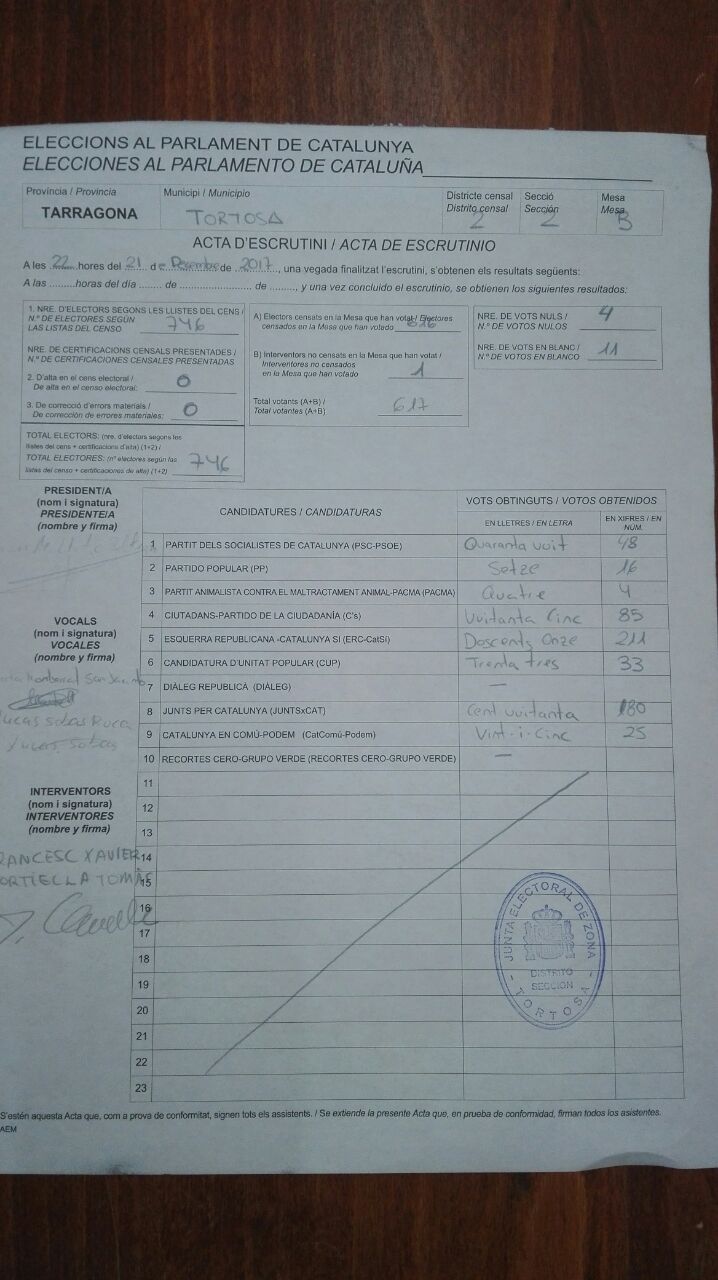 ELECCIONS AL PARLAMENT DE CATALUNYA
ELECCIONES AL PARLAMENTO DE CATALUÑA
Província / Provincia
TARRAGONA
Municipi / Municipio
TORTOSA
Districte censal
Distrito censal
2
Secció
Sección
2
Mesa
Mesa
B
ACTA D'ESCRUTINI / ACTA DE ESCRUTINIO
A les 22 hores del 21 de Desembre de 2017, una vegada finalitzat l'escrutini, s'obtenen els resultats següents:
A las .........horas del día ....... de ...................... de .........., y una vez concluido el escrutinio, se obtienen los siguientes resultados:
1. NRE. D'ELECTORS SEGONS LES LLISTES DEL CENS /
N.º DE ELECTORES SEGÚN
LAS LISTAS DEL CENSO 746
NRE. DE CERTIFICACIONS CENSALS PRESENTADES /
N.º DE CERTIFICACIONES CENSALES PRESENTADAS
2. D'alta en el cens electoral /
De alta en el censo electoral: 0
3. De correcció d'errors materials /
De corrección de errores materiales: 0
TOTAL ELECTORS: (nre. d'electors segons les
llistes del cens + certificacions d'alta) (1+2) /
TOTAL ELECTORES: (nº electores según las
listas del censo + certificaciones de alta) (1+2) 746
A) Electors censats en la Mesa que han votat / Electores
censados en la Mesa que han votado 616
B) Interventors no censats en la Mesa que han votat /
Interventores no censados
en la Mesa que han votado 1
Total votants (A+B) /
Total votantes (A+B) 617
NRE. DE VOTS NULS /
N.º DE VOTOS NULOS 4
NRE. DE VOTS EN BLANC /
N.º DE VOTOS EN BLANCO 11
PRESIDENT/A
(nom i signatura)
PRESIDENTE/A
(nombre y firma)
VOCALS
(nom i signatura)
VOCALES
(nombre y firma)
San Jacinto
Lucas Sobas
Lucas Sobas
INTERVENTORS
(nom i signatura)
INTERVENTORES
(nombre y firma)
RANCESC XAVIER
TOMÀS
CANDIDATURES / CANDIDATURAS
VOTS OBTINGUTS / VOTOS OBTENIDOS
EN LLETRES / EN LETRA
EN XIFRES / EN NÚM.
1 PARTIT DELS SOCIALISTES DE CATALUNYA (PSC-PSOE) Quaranta vuit 48
2 PARTIDO POPULAR (PP) Setze 16
3 PARTIT ANIMALISTA CONTRA EL MALTRACTAMENT ANIMAL-PACMA (PACMA) Quatre 4
4 CIUTADANS-PARTIDO DE LA CIUDADANÍA (C's) Vuitanta Cinc 85
5 ESQUERRA REPUBLICANA -CATALUNYA SÍ (ERC-CatSí) Doscents Onze 211
6 CANDIDATURA D'UNITAT POPULAR (CUP) Trenta tres 33
7 DIÀLEG REPUBLICÀ (DIÀLEG) —
8 JUNTS PER CATALUNYA (JUNTSxCAT) Cent vuitanta 180
9 CATALUNYA EN COMÚ-PODEM (CatComú-Podem) Vint-i-Cinc 25
10 RECORTES CERO-GRUPO VERDE (RECORTES CERO-GRUPO VERDE) —
11
12
13
14
15
16
17
18
19
20
21
22
23
JUNTA ELECTORAL DE ZONA
DISTRITO
SECCION
- TORTOSA -
S'estén aquesta Acta que, com a prova de conformitat, signen tots els assistents. / Se extiende la presente Acta que, en prueba de conformidad, firman todos los asistentes.
AEM